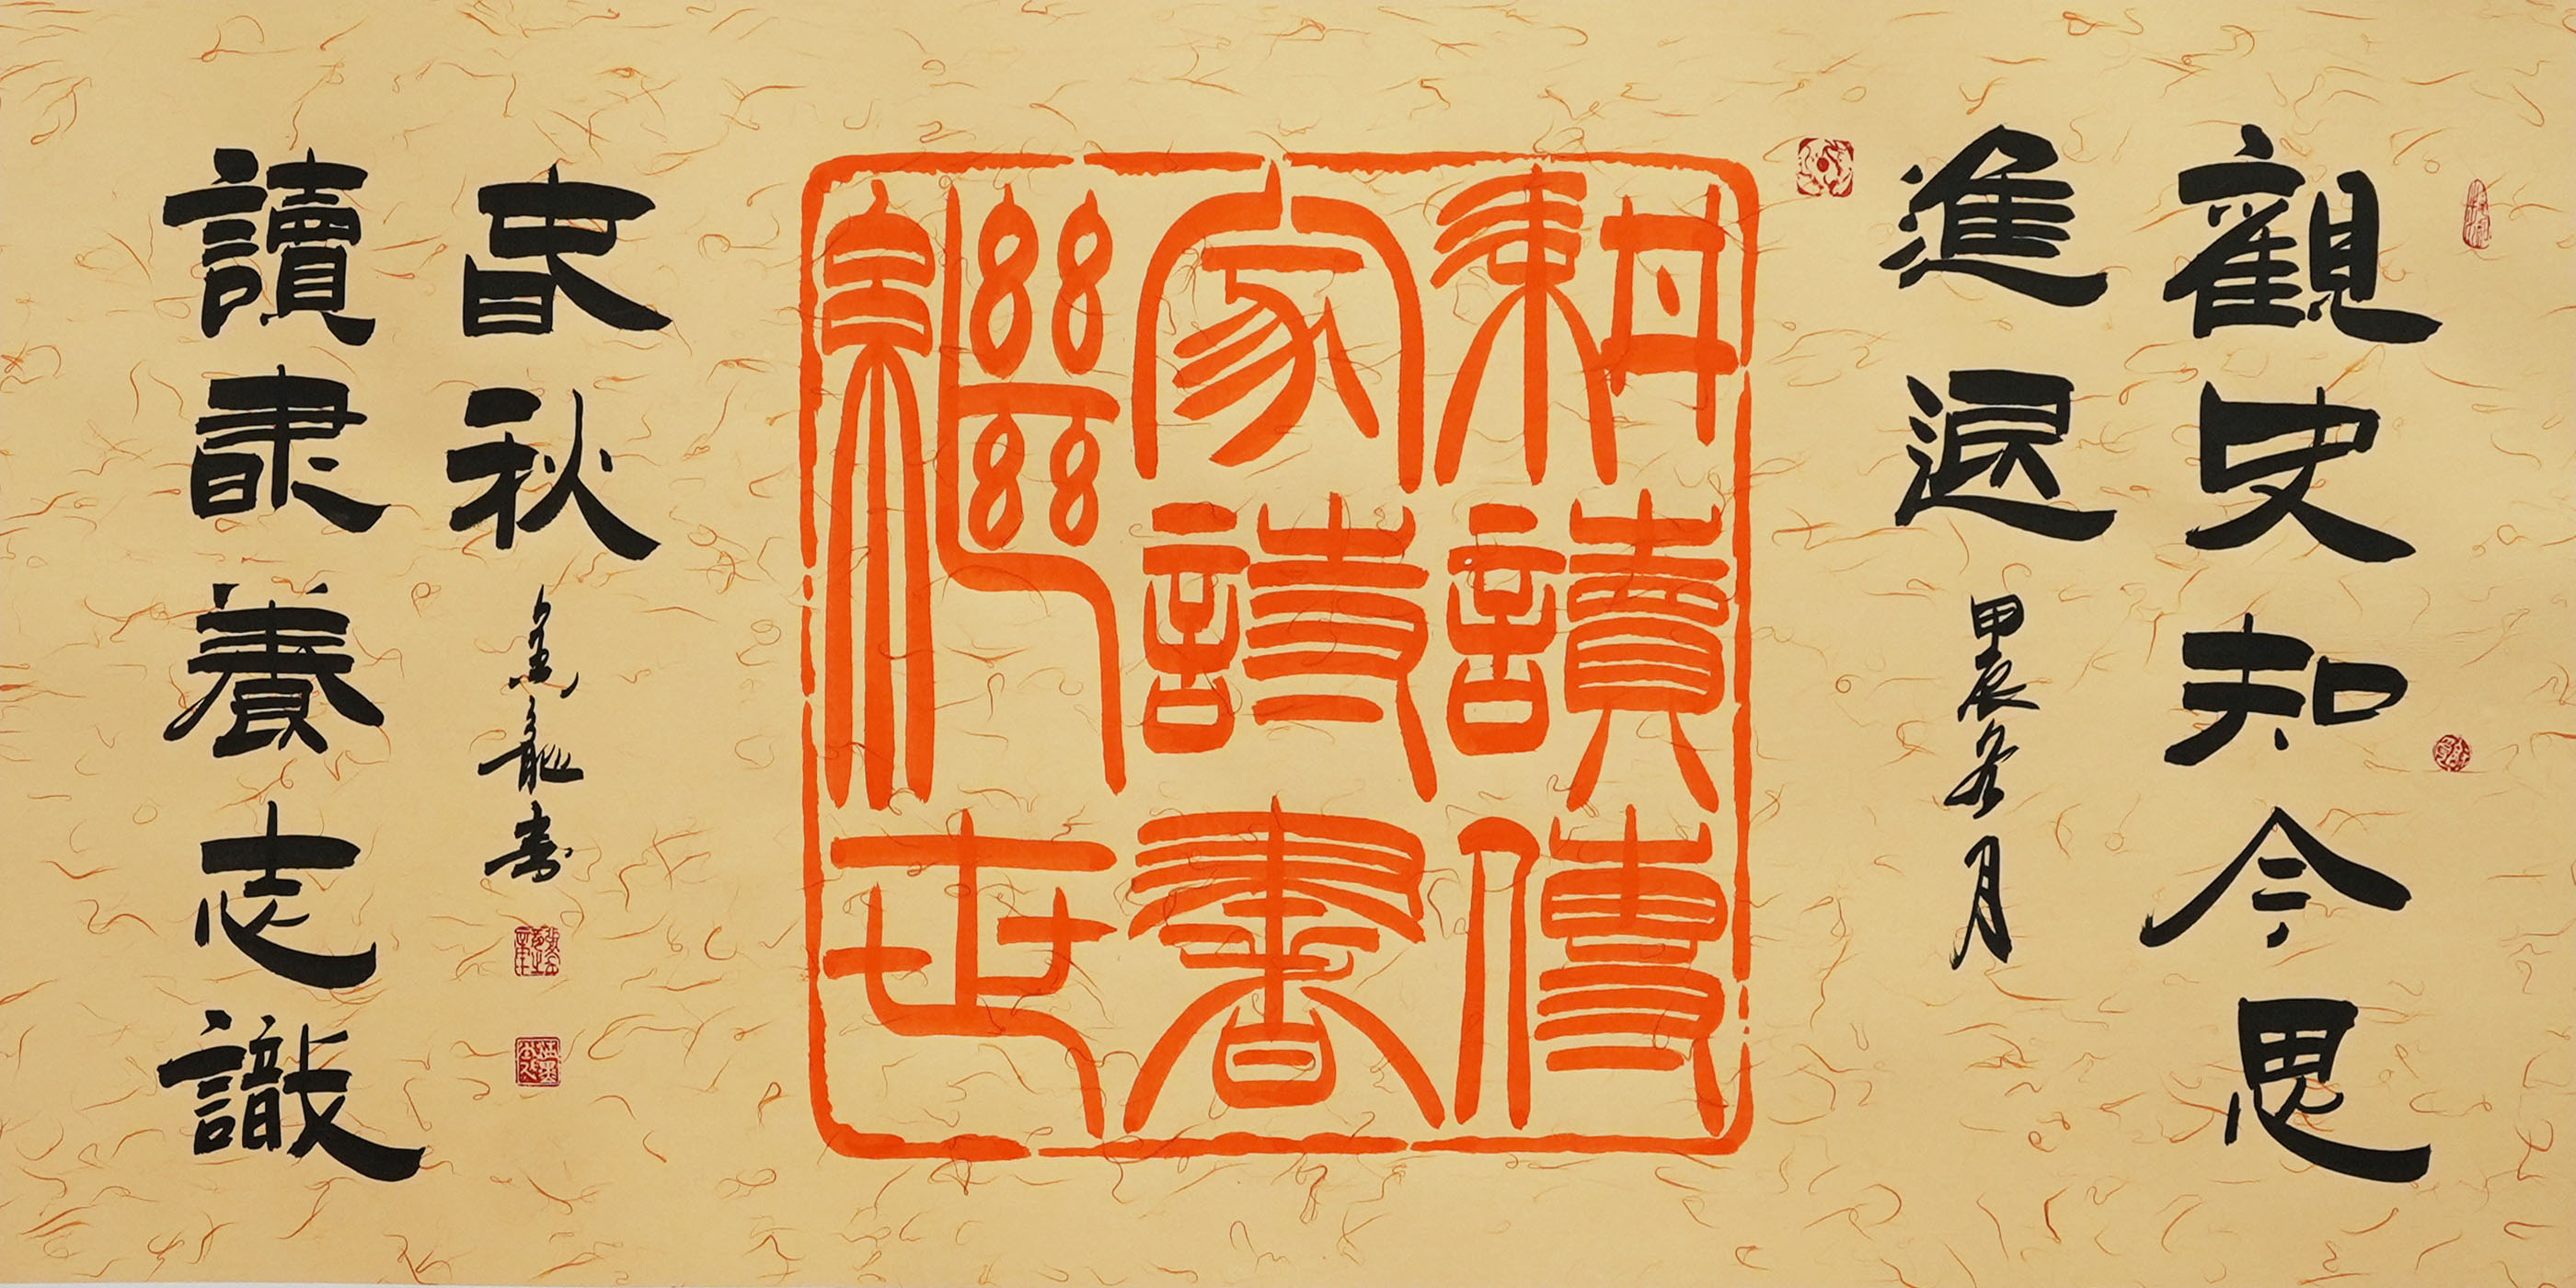 觀史知今思
進退 甲辰冬月
耕讀傳
家詩書
繼世
讀書養志識
春秋 龍書